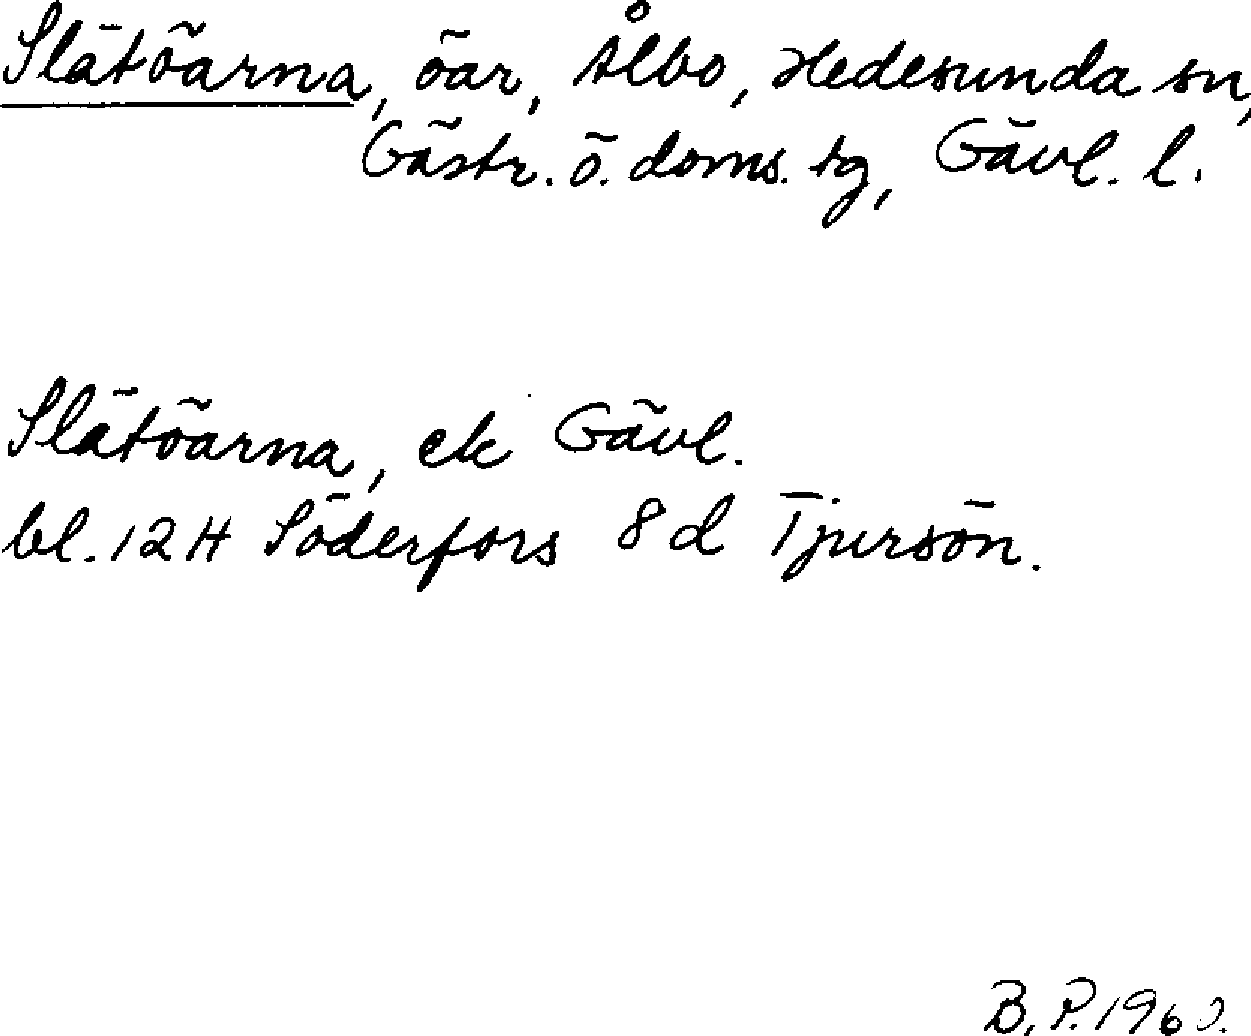 Slätöarna, öar, Ålbo, Hedesunda sn,
Gästr. ö. doms. tg, Gävl. l.
Slätöarna, ek Gävl.
bl. 12 H Söderfors 8 d Tjursön.
B. P. 1960.